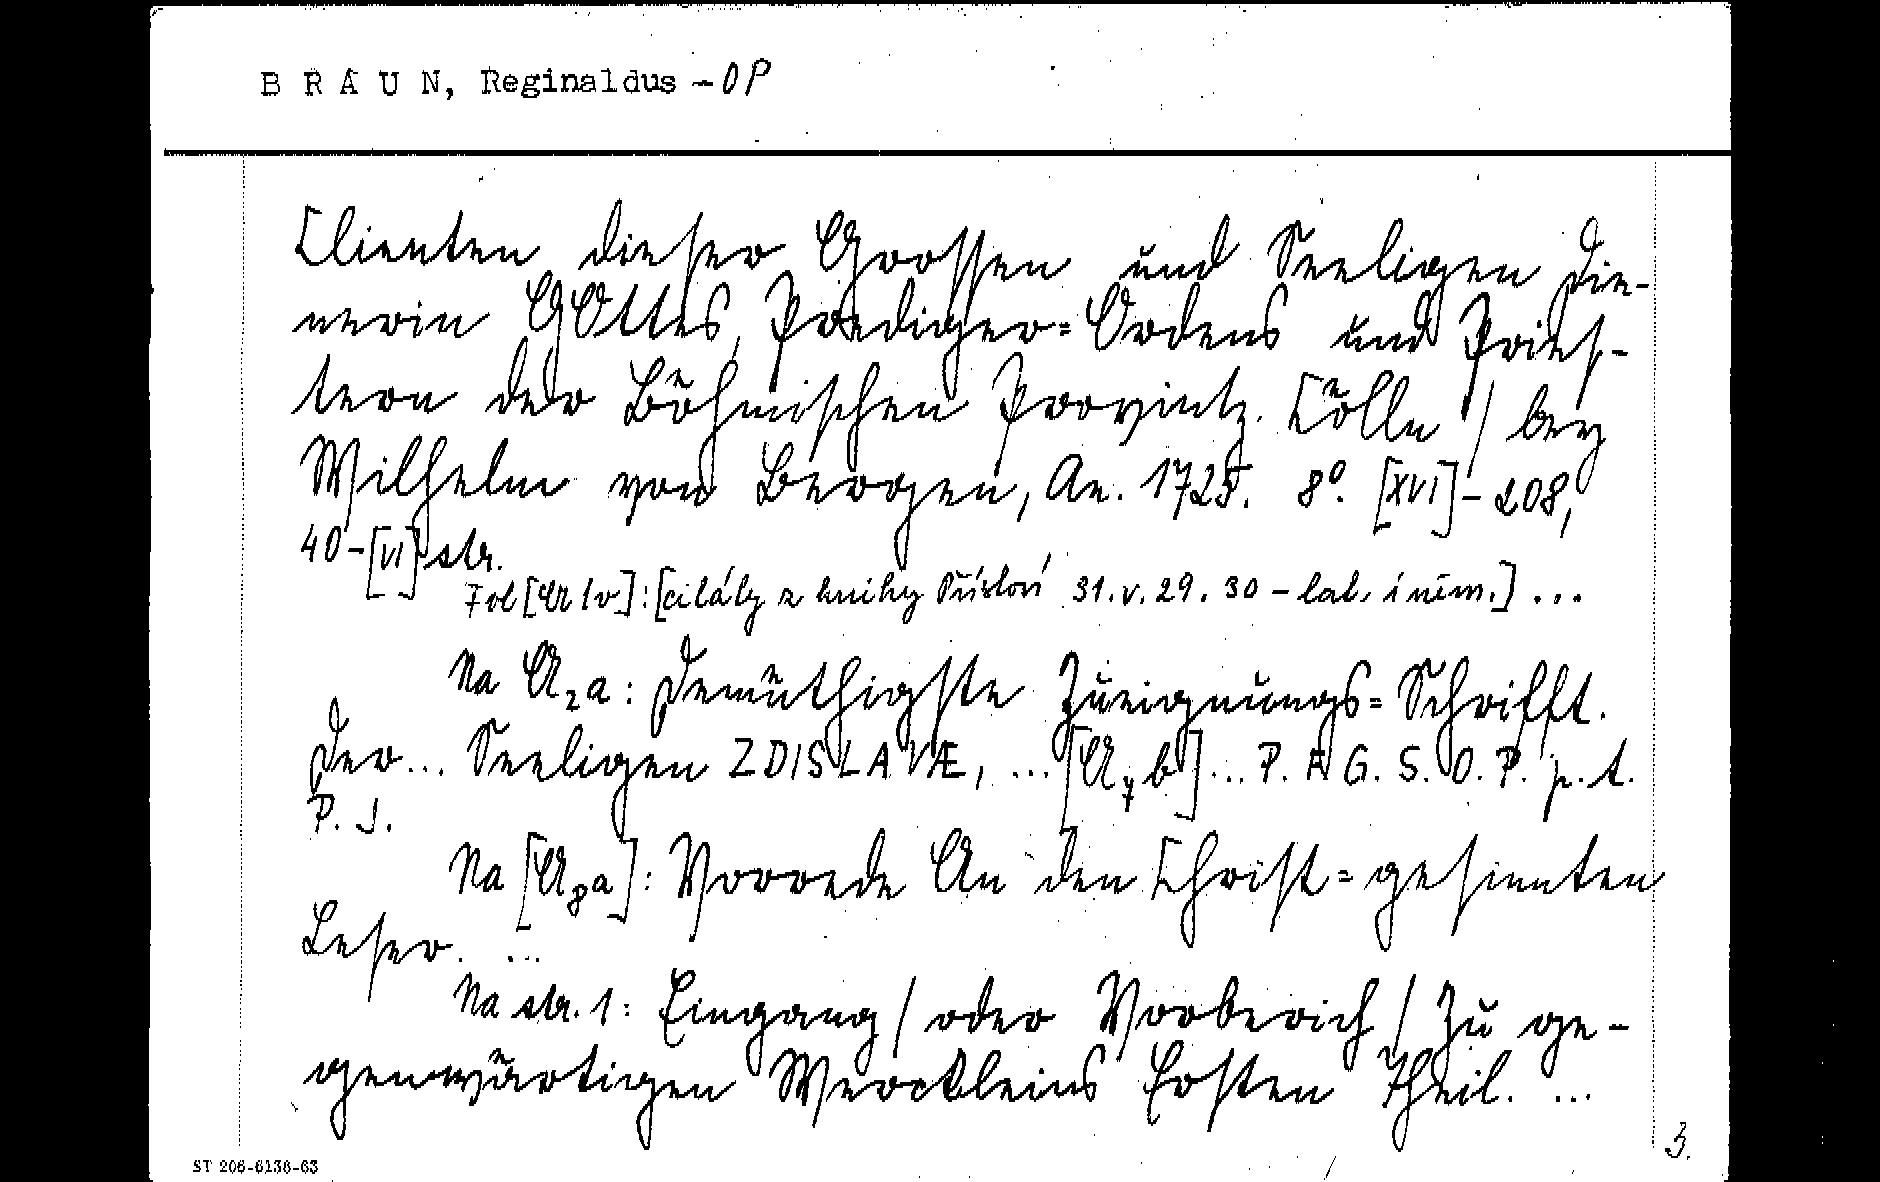 BRAUN, Reginaldus - OP
Clienten dieser Grossen und Seeligen Die-
nerin GOttes, Prediger=Ordens und Pries-
tern der Böhmischen Provintz. Cölln / bey
Wilhelm von Bergen, An. 1725. 8°. [XVI]-208,
40-[VI] str.
Fol [A1v]: [citáty z knihy Přísloví 31.v.29.30 - lat. i něm.] ...
Na A2a: Demüthigste Zueignungs=Schrifft.
Der... Seeligen ZDISLAVÆ, ... [A7b] ... P. A G. S. O. P. p. t.
P. J.
Na [A8a]: Vorrede An den Christ=gesinnten
Leser. ...
Na str. 1: Eingang / oder Vorberich / Zu ge-
genwärtigen Werckleins Ersten Theil. ...
3.
ST 206-6136-63